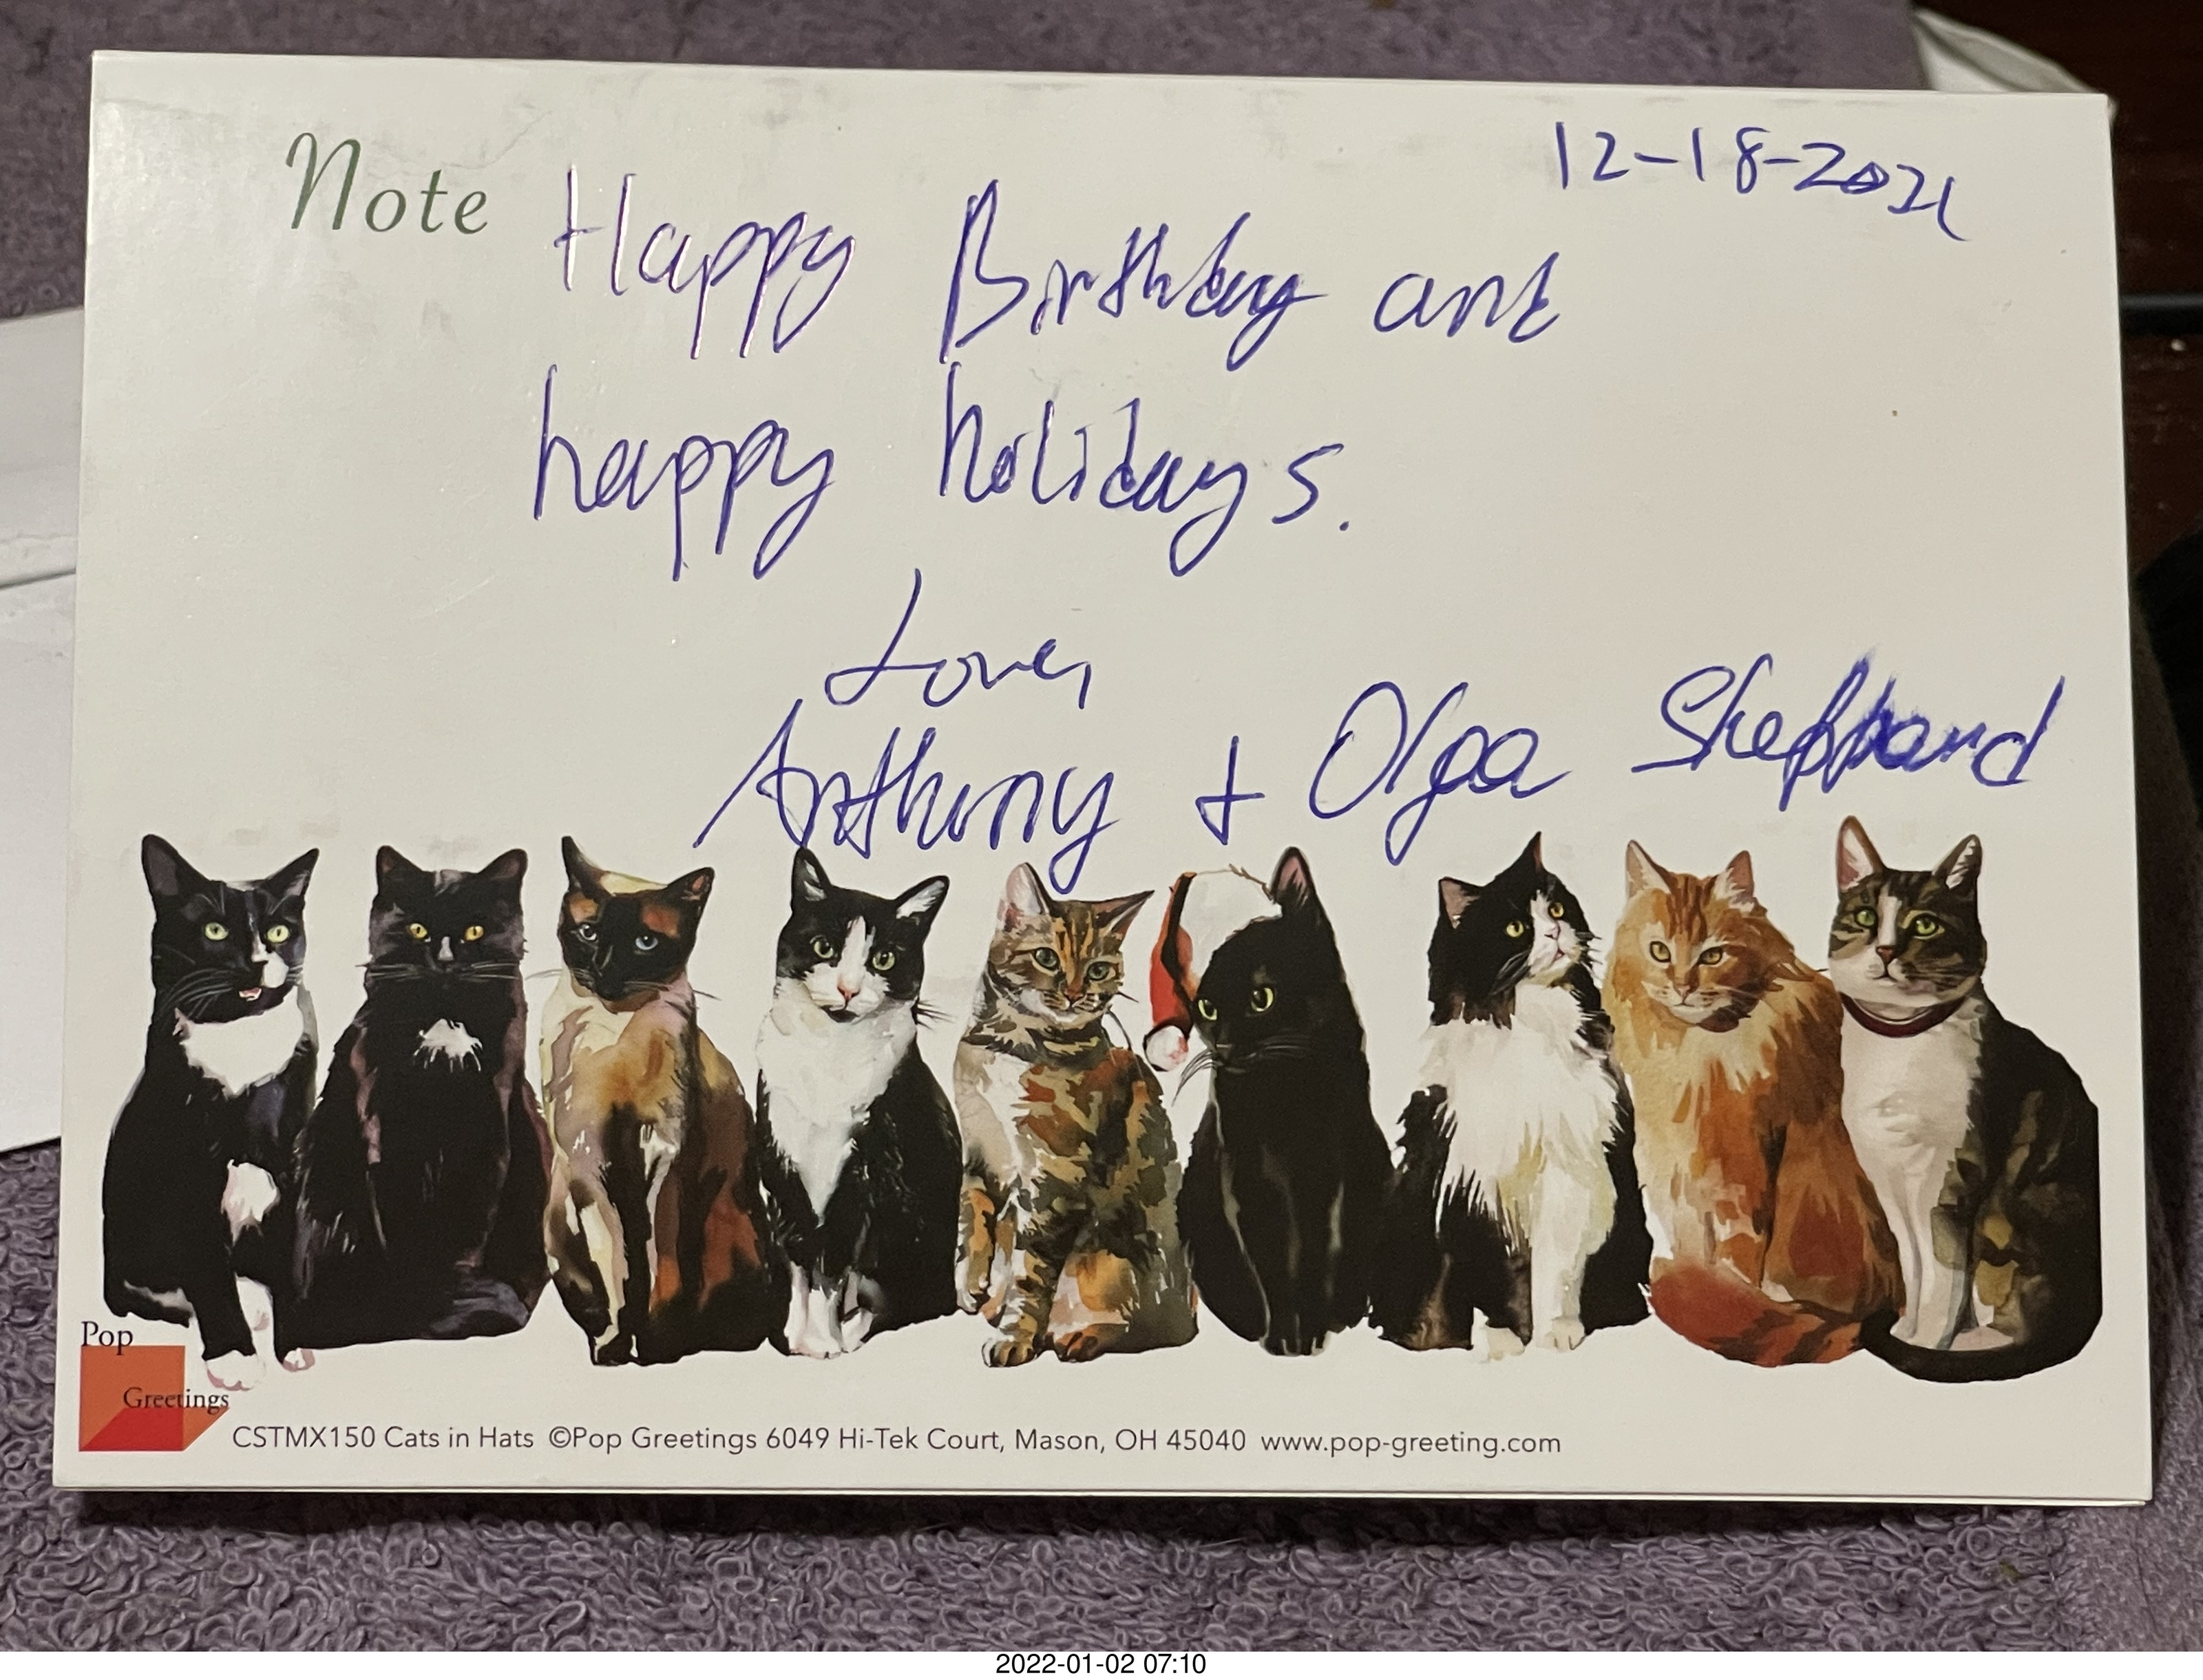 Note
12-18-2021
Happy Birthday and
happy holidays.
Love,
Anthony + Olga Sheppard
Pop
Greetings
CSTMX150 Cats in Hats ©Pop Greetings 6049 Hi-Tek Court, Mason, OH 45040 www.pop-greeting.com
2022-01-02 07:10